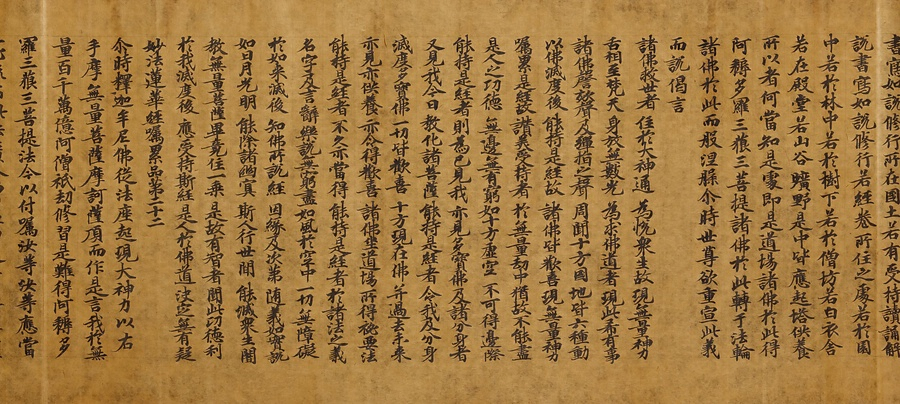 書寫如說修行所在國土若有受持讀誦解
說書寫如說修行若經卷所住之處若於園
中若於林中若於樹下若於僧坊若白衣舍
若在殿堂若山谷曠野是中皆應起塔供養
所以者何當知是處即是道場諸佛於此得
阿耨多羅三藐三菩提諸佛於此轉于法輪
諸佛於此而般涅槃尒時世尊欲重宣此義
而說偈言
諸佛救世者 住於大神通 為悅眾生故 現無量神力
舌相至梵天 身放無數光 為求佛道者 現此希有事
諸佛謦欬聲 及彈指之聲 周聞十方國 地皆六種動
以佛滅度後 能持是經故 諸佛皆歡喜 現無量神力
囑累是經故 讚美受持者 於無量劫中 猶故不能盡
是人之功德 無邊無有窮 如十方虛空 不可得邊際
能持是經者 則為已見我 亦見多寶佛 及諸分身者
又見我今日 教化諸菩薩 能持是經者 令我及分身
滅度多寶佛 一切皆歡喜 十方現在佛 并過去未來
亦見亦供養 亦令得歡喜 諸佛坐道場 所得秘要法
能持是經者 不久亦當得 能持是經者 於諸法之義
名字及言辭 樂說無窮盡 如風於空中 一切無障礙
於如來滅後 知佛所說經 因緣及次第 隨義如實說
如日月光明 能除諸幽冥 斯人行世間 能滅眾生闇
教無量菩薩 畢竟住一乘 是故有智者 聞此功德利
於我滅度後 應受持斯經 是人於佛道 決定無有疑
妙法蓮華經囑累品第二十二
尒時釋迦牟尼佛從法座起現大神力以右
手摩無量菩薩摩訶薩頂而作是言我於無
量百千萬億阿僧祇劫修習是難得阿耨多
羅三藐三菩提法今以付囑汝等汝等應當